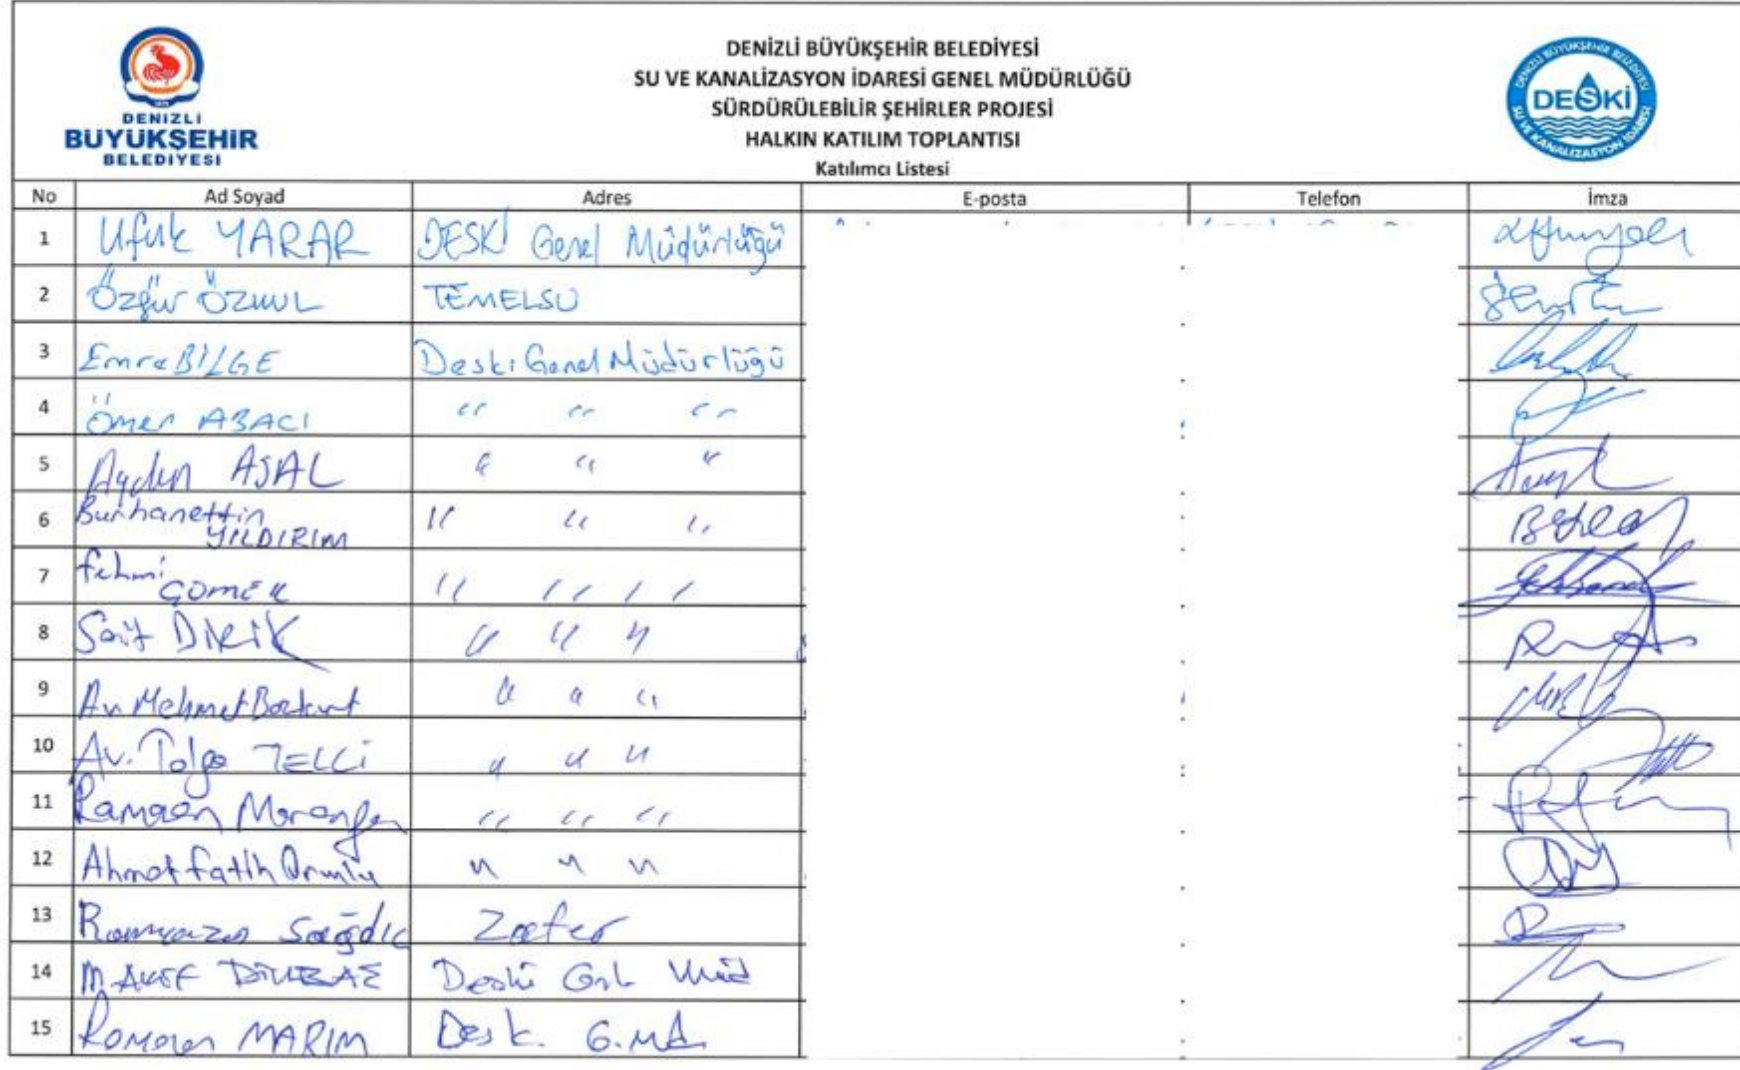 DENİZLİ
BÜYÜKŞEHİR
BELEDİYESİ
DENİZLİ BÜYÜKŞEHİR BELEDİYESİ
SU VE KANALİZASYON İDARESİ GENEL MÜDÜRLÜĞÜ
SÜRDÜRÜLEBİLİR ŞEHİRLER PROJESİ
HALKIN KATILIM TOPLANTISI
Katılımcı Listesi
DENİZLİ BÜYÜKŞEHİR BELEDİYESİ
DESKİ
SU VE KANALİZASYON İDARESİ
No Ad Soyad Adres E-posta Telefon İmza
1 Ufuk YARAR DESKİ Genel Müdürlüğü
2 Özgür TEMELSU
3 Emre BİLGE Deski Genel Müdürlüğü
4 Ömer ABACI " " "
5 Aydın " " "
6 Burhanettin
YILDIRIM " " "
7 Fehmi
" " " "
8 Sait DİRİK " " "
9 Av. Mehmet " " "
10 Av. Tolga TELLİ " " "
11 " " "
12 Ahmet Fatih " " "
13 Ramazan Sağdıç Zafer
14 M. AKİF Deski Gnl Müd
15 Ramazan MARIM Desk. G.Md.